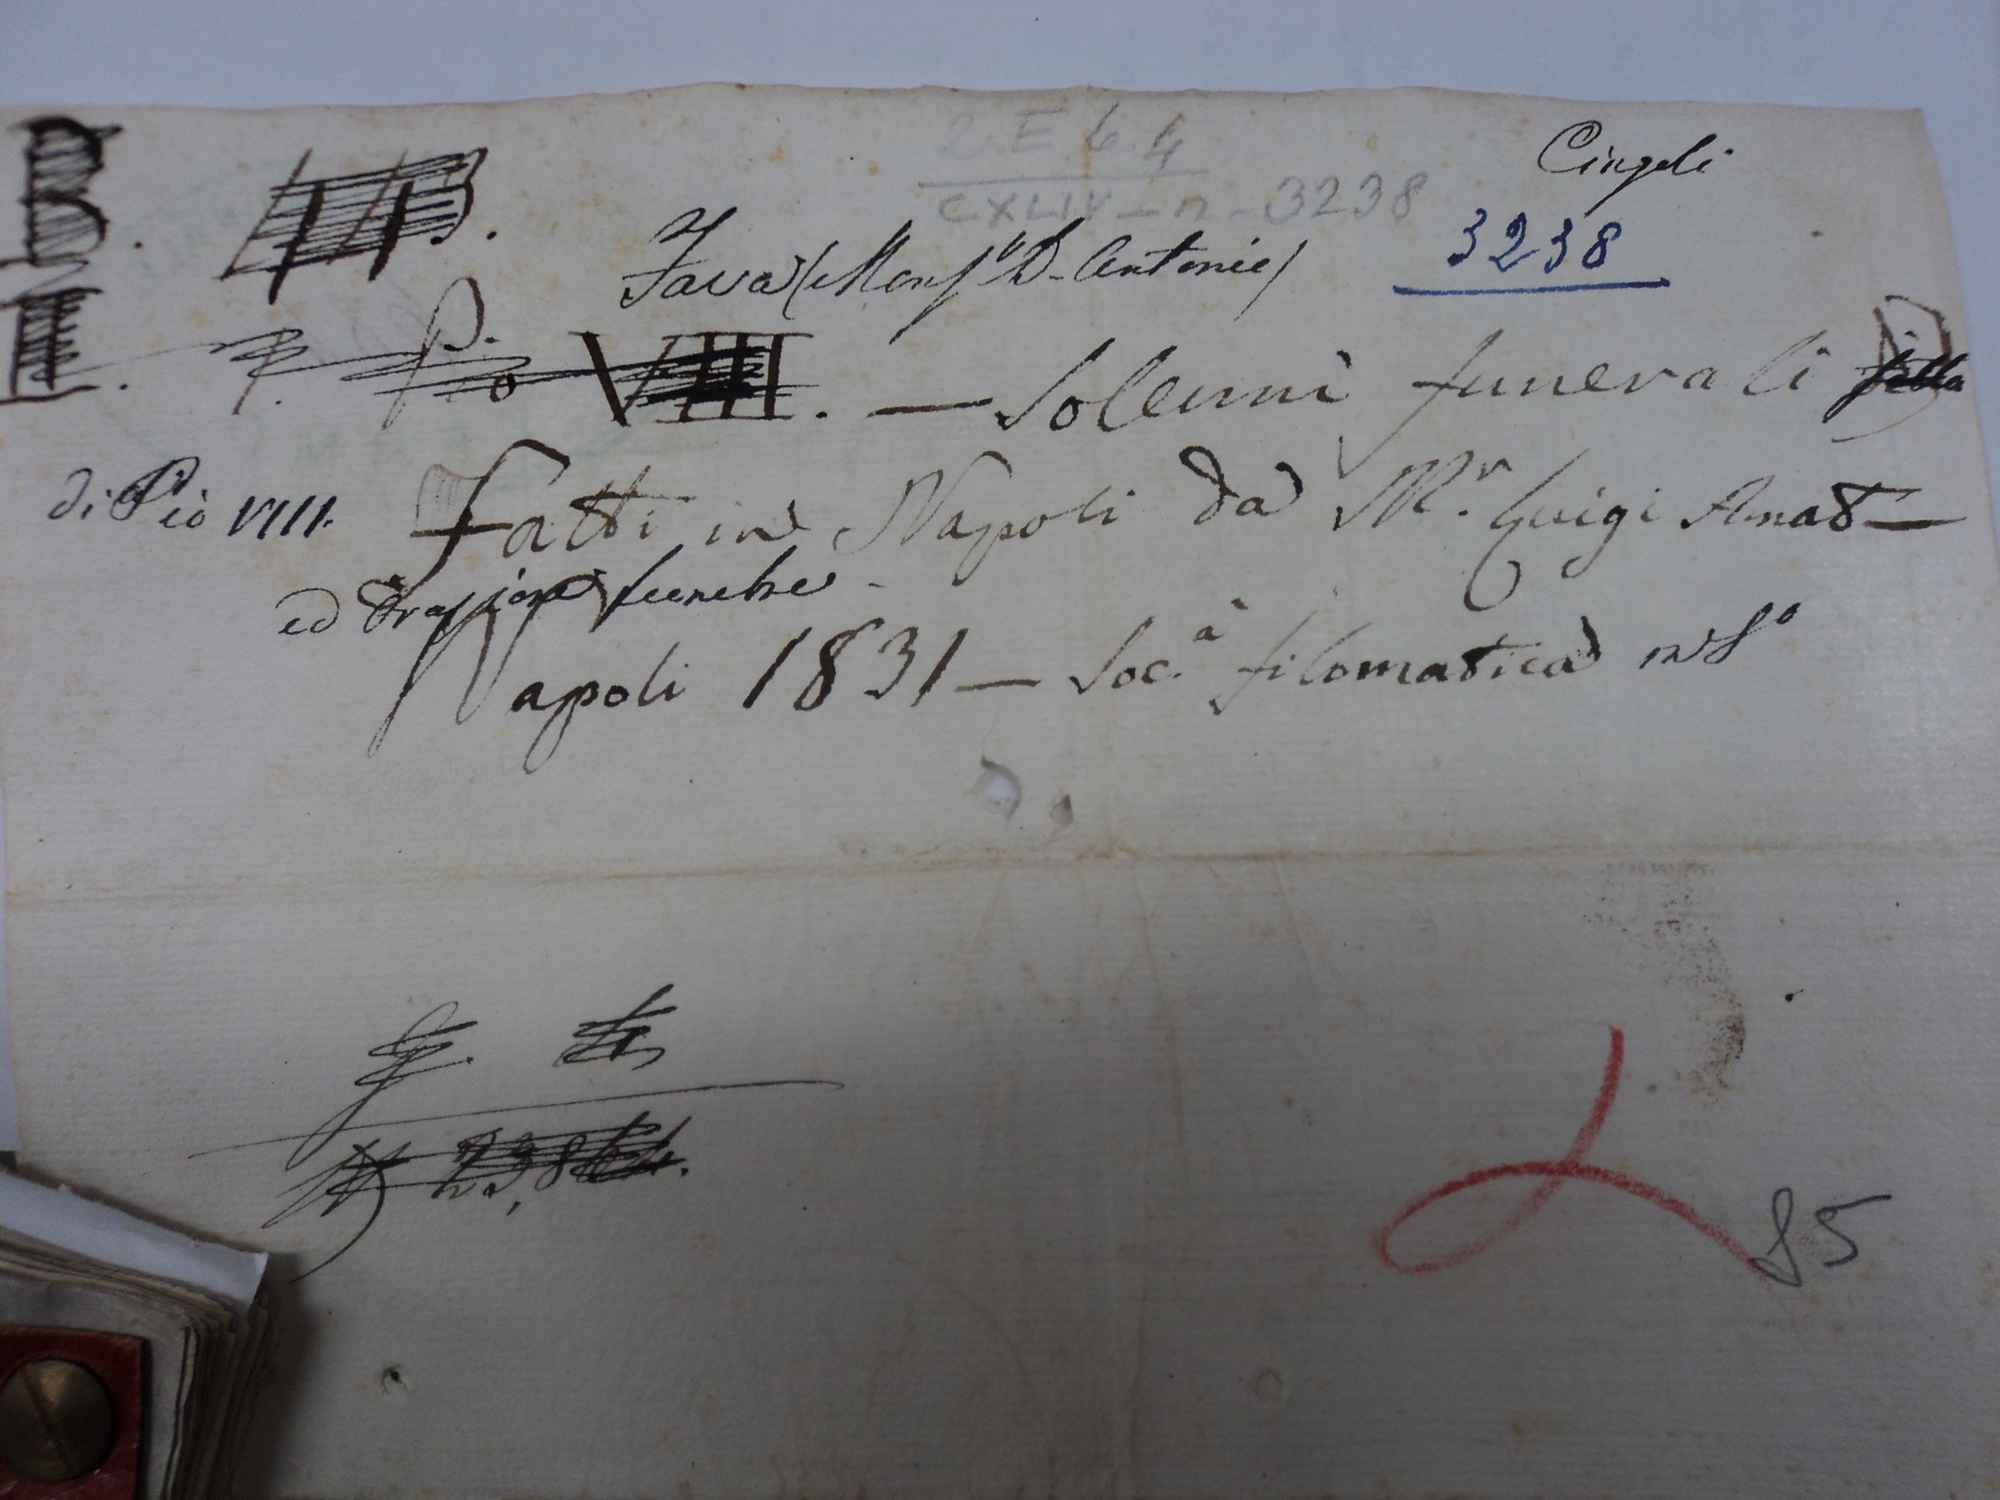 2. E. 6. 4
Cingoli
CXLIV - n - 3238
3238
Fava (Monsr D. Antonio)
P. Pio VIII. — Solenni funerali
di Pio VIII. Fatti in Napoli da Mr. Luigi Amat —
ed Orazione funebre -
Napoli 1831 — Soc.a filomatica in 8o
85